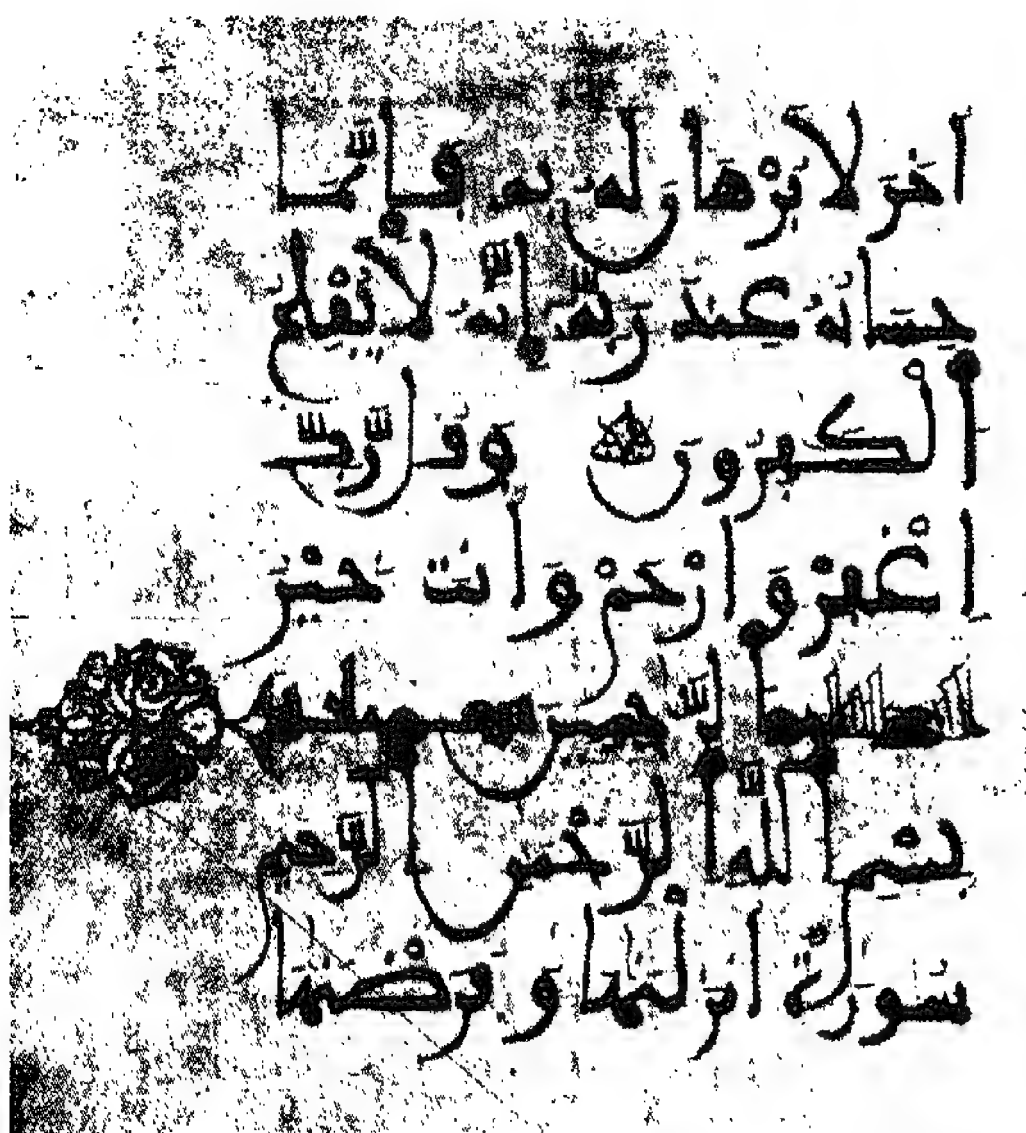 اخَرَ لَا بُرْهَانَ لَهُ بِهِ فَإِنَّمَا
حِسَابُهُ عِنْدَ رَبِّهِ إِنَّهُ لَا يُفْلِحُ
الْكَفِرُونَ وَقُل رَّبِّ
اغْفِرْ وَارْحَمْ وَانتَ خَيْرُ
الرَّحِمِينَ
بِسْمِ اللَّهِ الرَّحْمَنِ الرَّحِيمِ
سُورَةٌ انزَلْنَهَا وَفَرَضْنَهَا